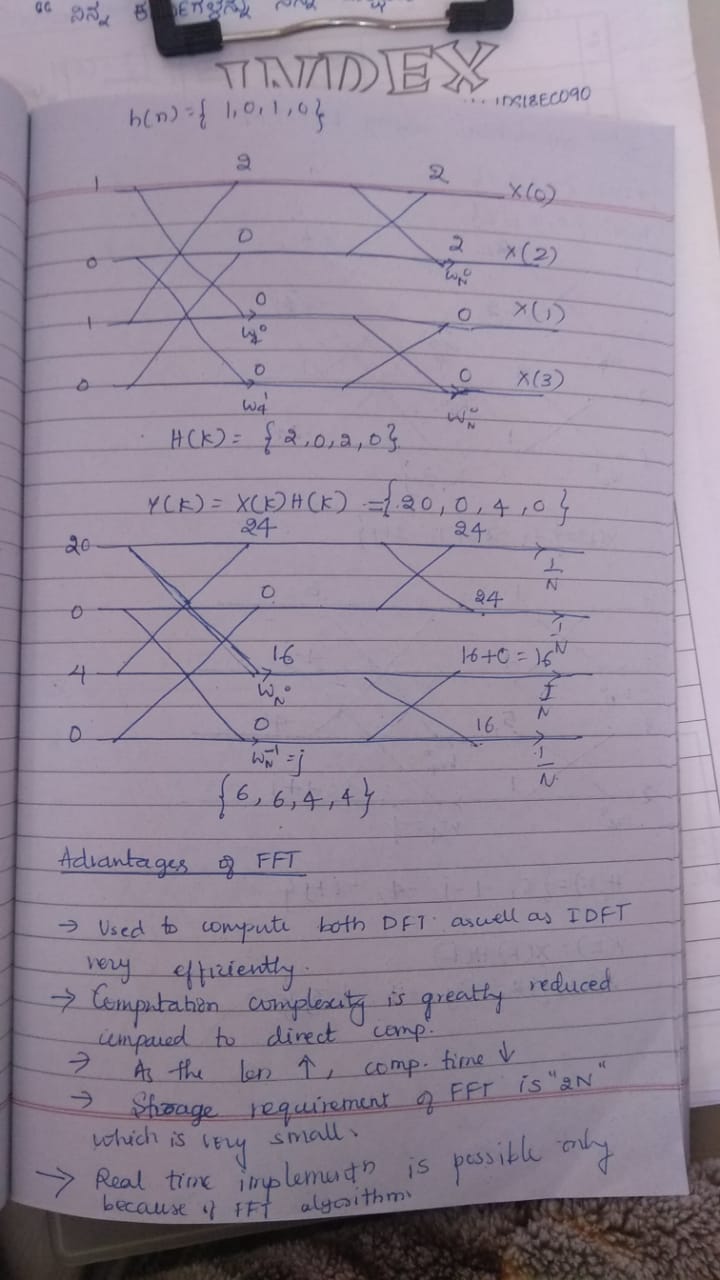 “ ನಿನ್ನ
INDEX
1DS18EC090
h(n) = { 1, 0, 1, 0}
1 2 2 X(0)
0 0 2 X(2)
W_N^0
1 0 0 X(1)
0 0 X(3)
0 W_4^1 W_N^0
H(K) = { 2, 0, 2, 0}
Y(K) = X(K) H(K) = { 20, 0, 4, 0 }
20 24 24 1/N
0 0 24 1/N
4 16 16+0 = 16 1/N
W_N^0
0 0 16 1/N
W_N^-1 = j
{6, 6, 4, 4}
Advantages of FFT
→ Used to compute both DFT aswell as IDFT
very efficiently.
→ Computation complexity is greatly reduced
compared to direct comp.
→ As the len ↑, comp. time ↓
→ Storage requirement of FFT is "2N"
which is very small.
→ Real time implementn is possible only
because of FFT algorithm.